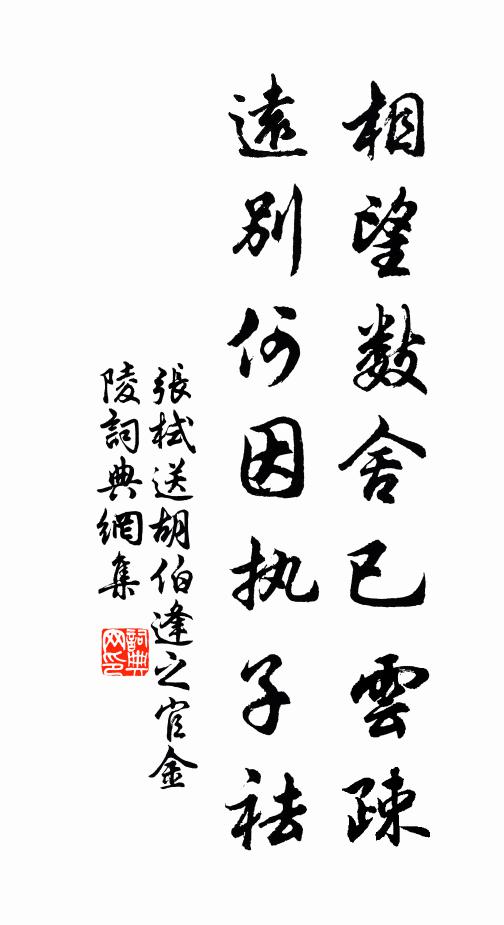 相望数舍已雲疎
遠别何因执子袪
張栻送胡伯逢之官金
陵詞典網集
詞典
网印